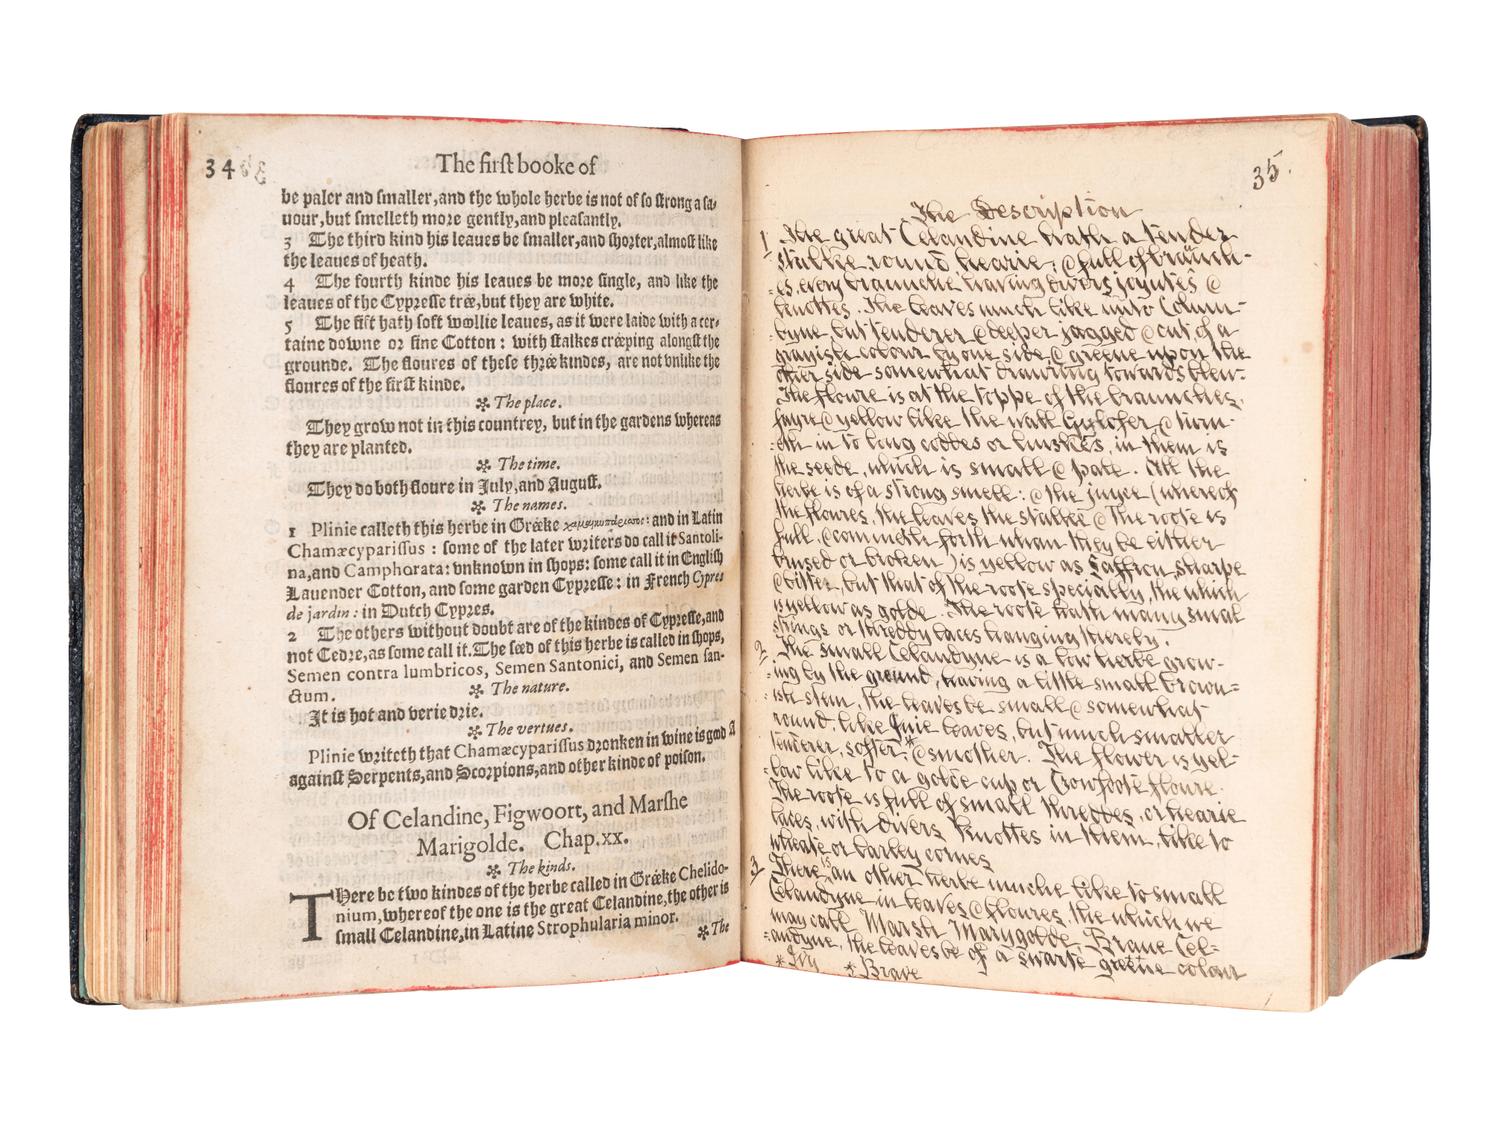 34
The first booke of
be paler and smaller, and the whole herbe is not of so strong a sa-
uour, but smelleth more gently, and pleasantly.
3 The third kind his leaues be smaller, and shorter, almost like
the leaues of heath.
4 The fourth kinde his leaues be more single, and like the
leaues of the Cypresse trée, but they are white.
5 The fift hath soft woollie leaues, as it were laide with a cer-
taine downe or fine Cotton: with stalkes créeping alongst the
grounde. The floures of these thrée kindes, are not vnlike the
floures of the first kinde.
✣ The place.
They grow not in this countrey, but in the gardens whereas
they are planted.
✣ The time.
They do both floure in July, and August.
✣ The names.
1 Plinie calleth this herbe in Gréeke : and in Latin
Chamæcyparissus : some of the later writers do call it Santoli-
na, and Camphorata: vnknown in shops: some call it in English
Lauender Cotton, and some garden Cypresse: in French Cypres
de jardin: in Dutch Cypres.
2 The others without doubt are of the kindes of Cypresse, and
not Cedre, as some call it. The séed of this herbe is called in shops,
Semen contra lumbricos, Semen Santonici, and Semen san-
ctum.
✣ The nature.
It is hot and verie drie.
✣ The vertues.
Plinie writeth that Chamæcyparissus dronken in wine is good A
against Serpents, and Scorpions, and other kinde of poison.
Of Celandine, Figwoort, and Marshe
Marigolde. Chap.xx.
✣ The kinds.
There be two kindes of the herbe called in Gréeke Chelido-
nium, whereof the one is the great Celandine, the other is
small Celandine, in Latine Strophularia minor.
✣ The
35.
The Description
1 The great Celandine hath a tender
stalke round hearie: @ full of braunch-
=es, every braunche having divers joyntes @
knottes. The leaves much like unto Colum-
byne but tenderer @ deeper jagged @ cut of a
grayish colour by one side @ greene upon the
other side somewhat drawing towards blew.
The floure is at the toppe of the braunches,
fayre @ yellow like the wall Gylofer @ turn-
=eth in to long coddes or huskes, in them is
the seede, which is small @ pale. All the
herbe is of a strong smell: @ the juyce (whereof
the floures, the leaves the stalke @ The roote is
full, @ commeth forth whan they be either
brused or broken) is yellow as Saffron, sharpe
@ bitter, but that of the roote specially, the which
is yellow as golde. The roote hath many smal
strings or threddy laces hanging thereby.
2 The small Celandyne is a low herbe grow-
=ing by the ground, having a little small brown=
=ish stem, the leaves be small @ somewhat
round, like Ivie leaves, but much smaller
tenderer, softer,* @ smother. The flower is yel-
=low like to a golde cup or Crowfoote floure.
The roote is full of small threddes, or hearie
laces, with divers knottes in them, like to
wheate or barley cornes
3 There is an other herbe muche like to small
Celandyne in leaves @ floures, the which we
may call Marsh Marygolde, Brave Cel-
=andyne, the leaves be of a swarte greene colour
* Ivy * Brave